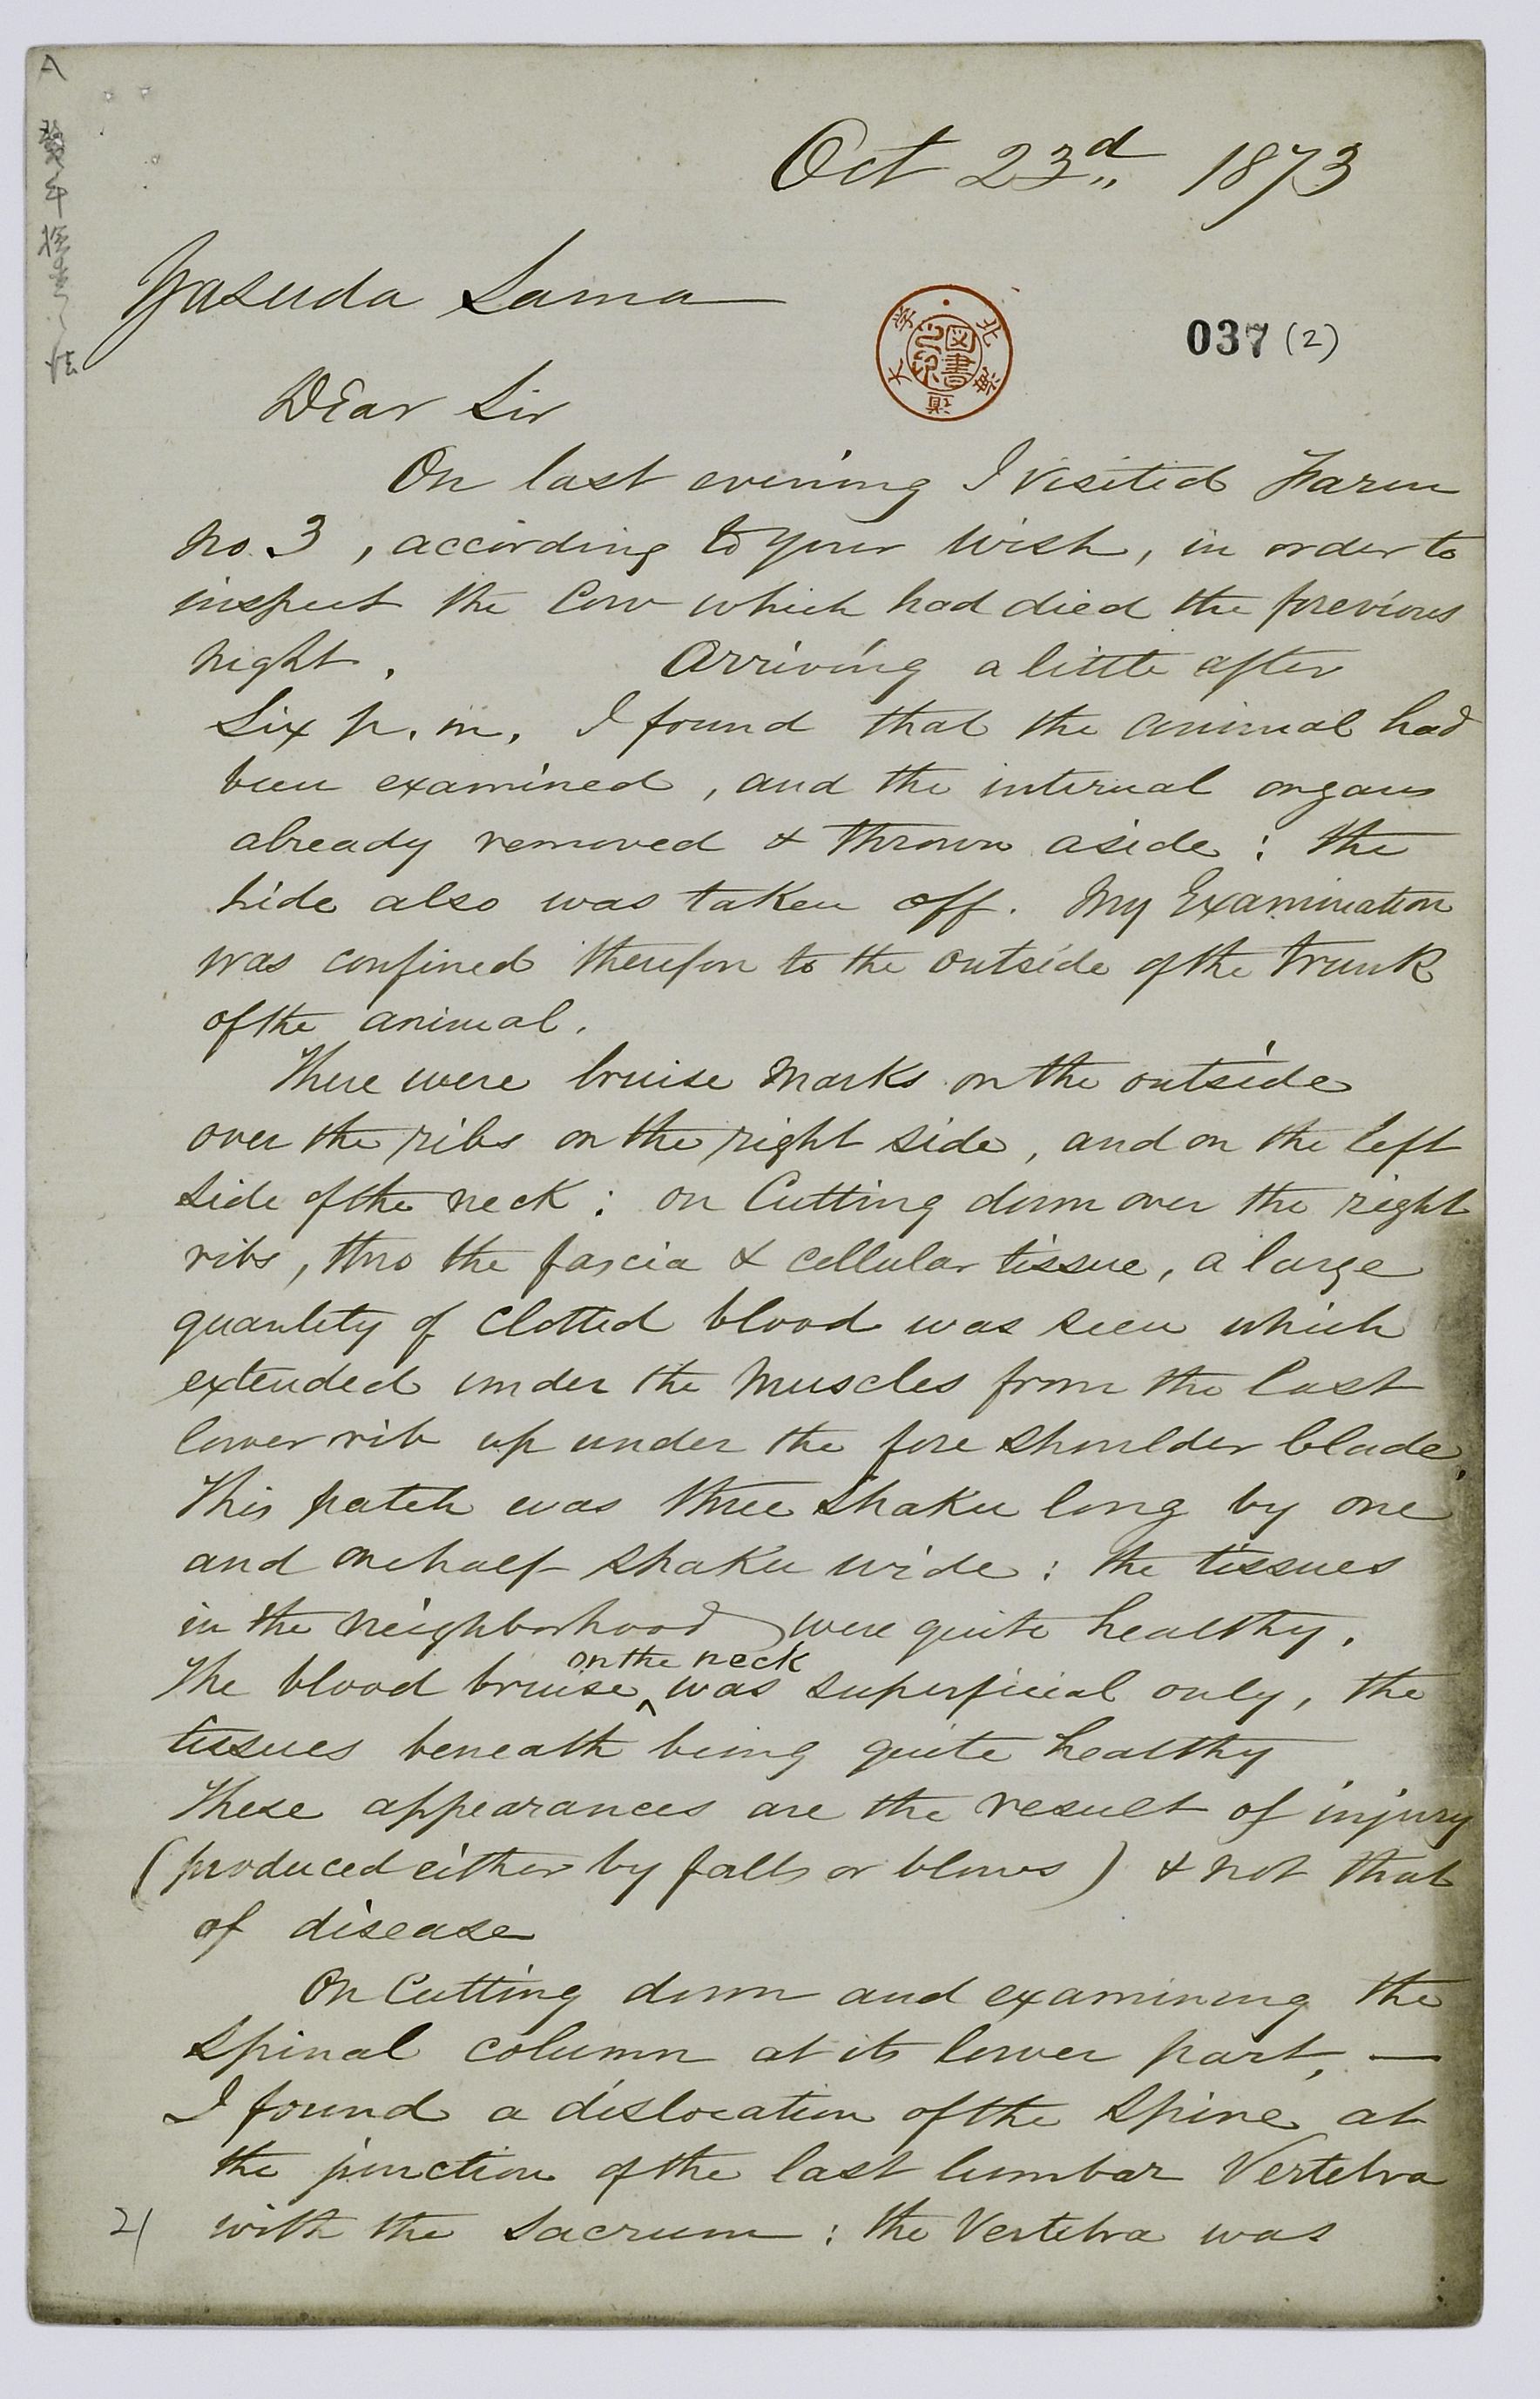 Oct 23d 1873
Yasuda Sama
北海道大学
図書之印
037 (2)
Dear Sir
On last evening I visited Farm
No. 3, according to your wish, in order to
inspect the Cow which had died the previous
night. Arriving a little after
Six p.m. I found that the animal had
been examined, and the internal organs
already removed & thrown aside: the
hide also was taken off. My Examination
was confined therefore to the outside of the trunk
of the animal.
There were bruise marks on the outside
over the ribs on the right side, and on the left
side of the neck: on Cutting down over the right
ribs, thro the fascia & cellular tissue, a large
quantity of Clotted blood was seen which
extended under the Muscles from the last
lower rib up under the fore shoulder blade.
This patch was three Shaku long by one
and one half Shaku wide: the tissues
in the neighborhood were quite healthy.
The blood bruise on the neck was superficial only, the
tissues beneath being quite healthy
These appearances are the result of injury
(produced either by falls or blows) & not that
of disease
On Cutting down and examining the
Spinal column at its lower part, —
I found a dislocation of the Spine at
the junction of the last lumbar Vertebra
with the Sacrum: the Vertebra was
2/